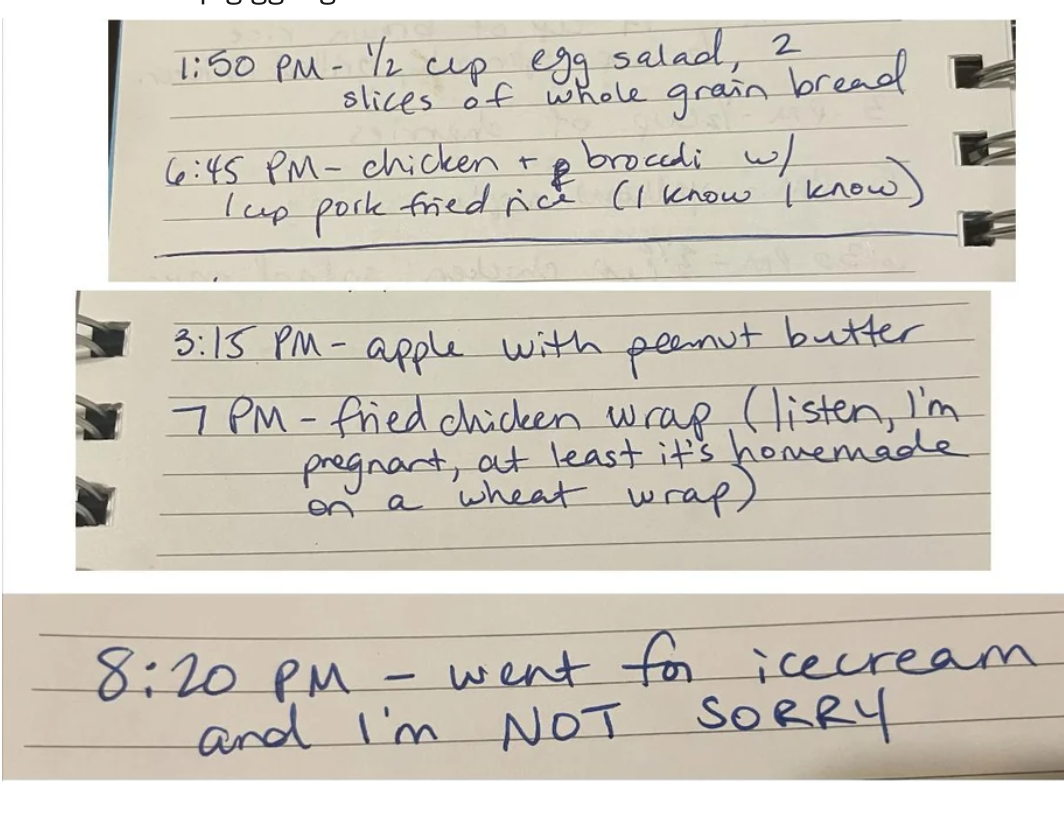 1:50 PM - 1/2 cup egg salad, 2
slices of whole grain bread
6:45 PM - chicken + broccoli w/
1 cup pork fried rice (I know I know)
3:15 PM - apple with peanut butter
7 PM - fried chicken wrap (listen, I'm
pregnant, at least it's homemade
on a wheat wrap)
8:20 PM - went for icecream
and I'm NOT SORRY